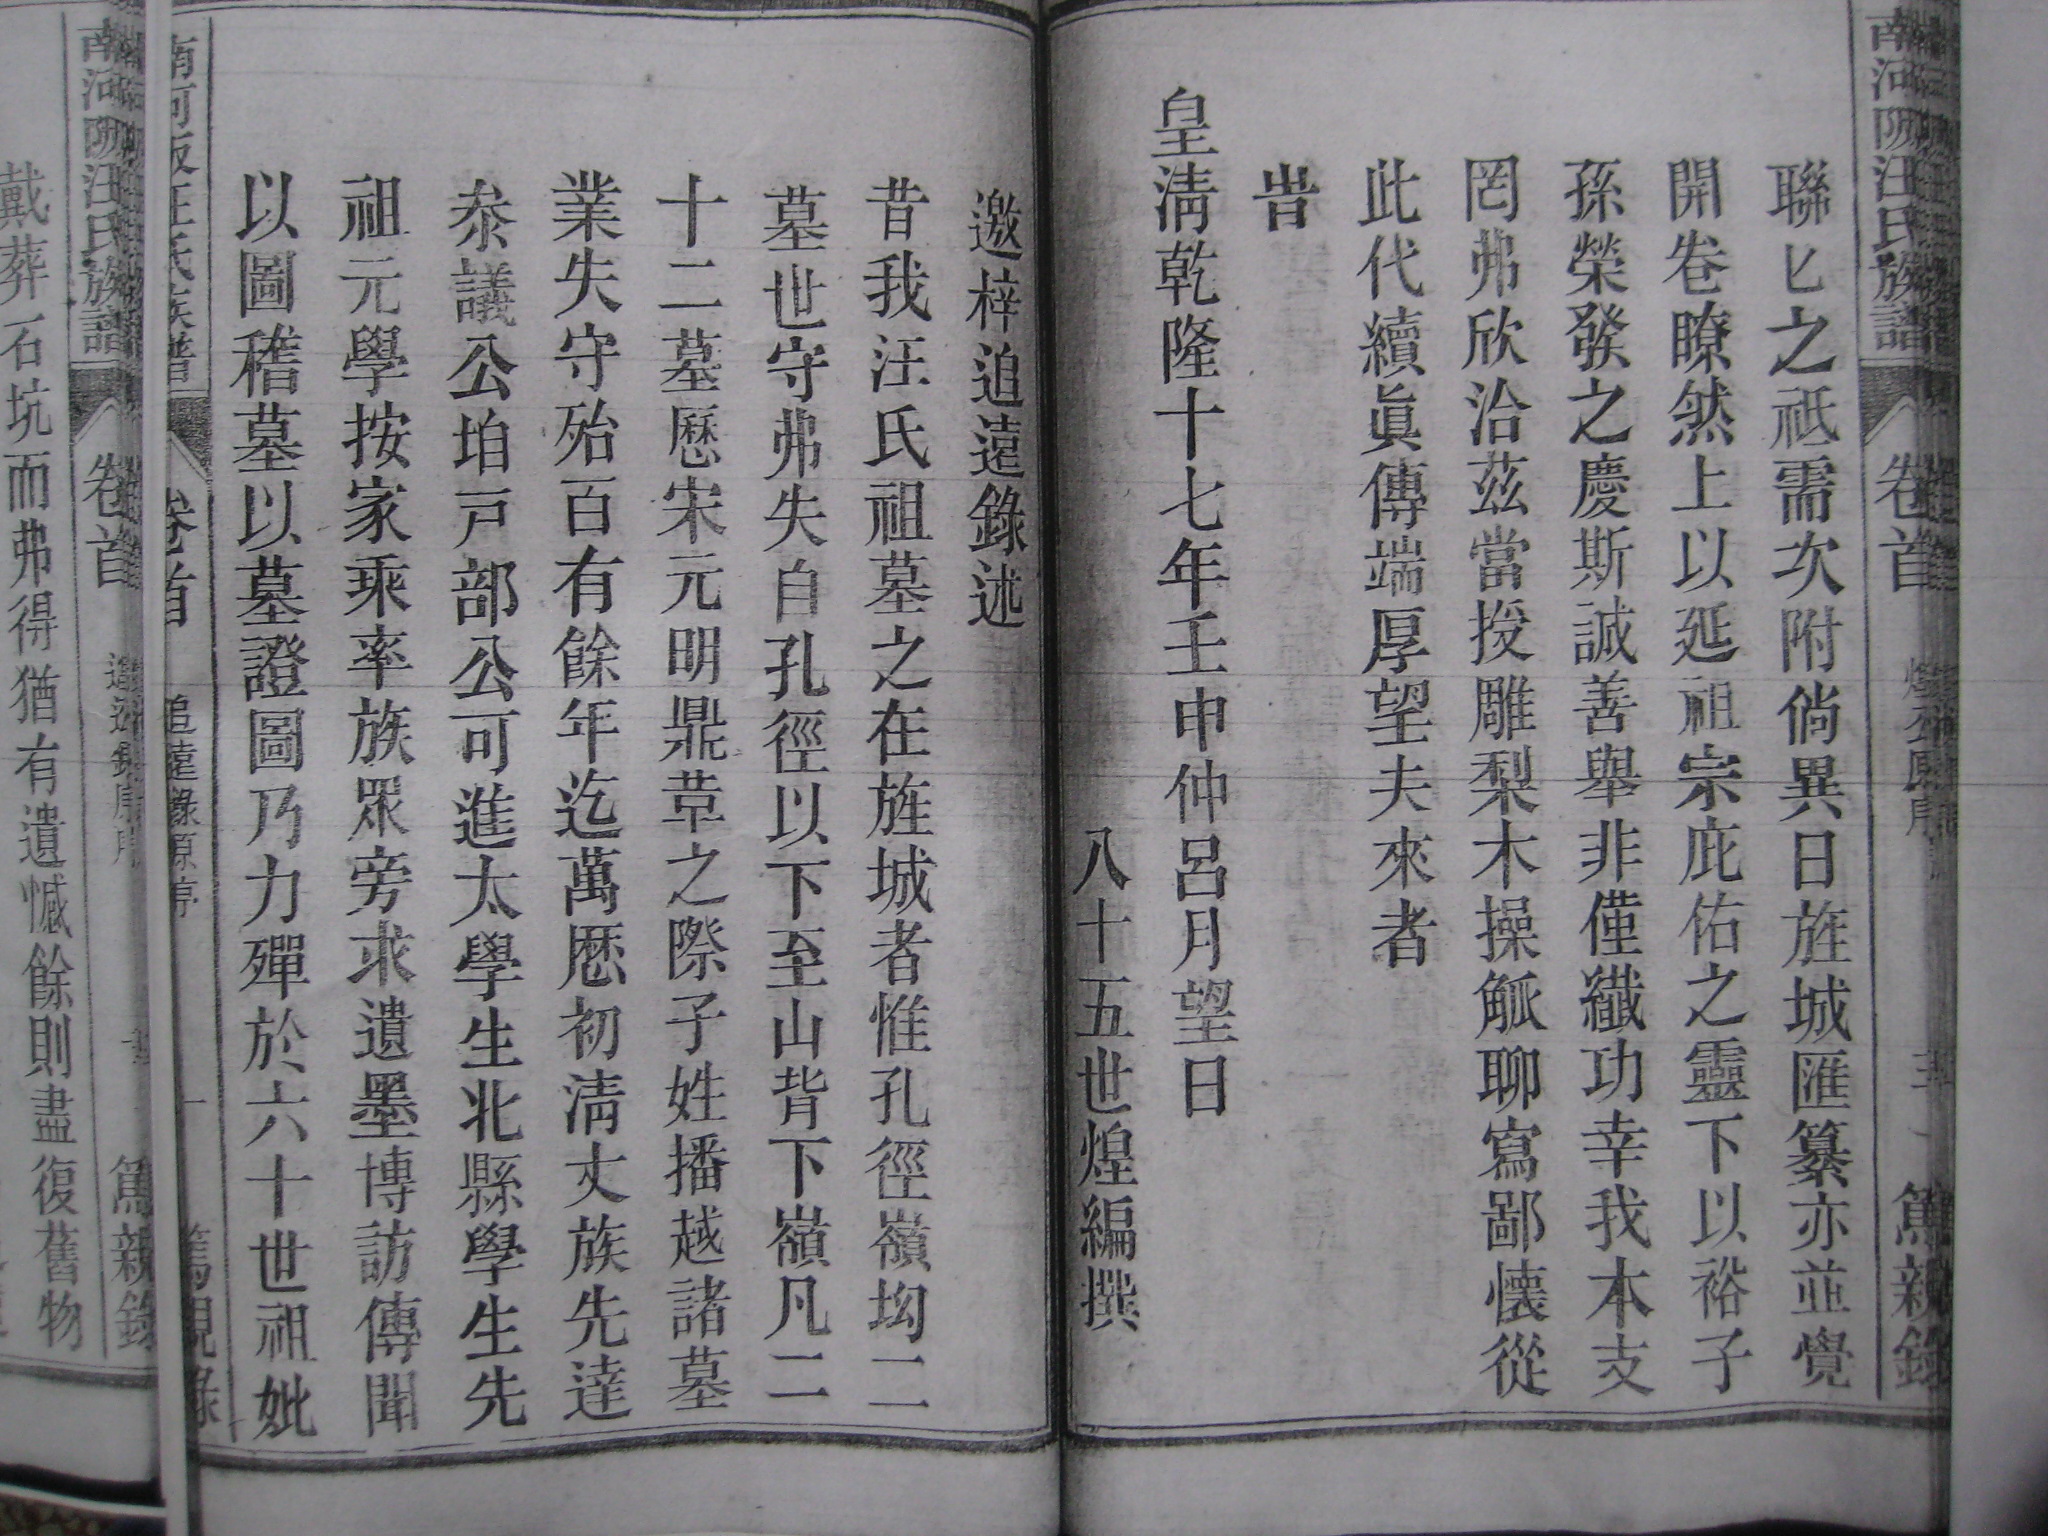 南河阪汪氏族譜 卷首 篤親錄
聯匕之祗需次附倘異日旌城匯纂亦並覺
開卷瞭然上以延祖宗庇佑之靈下以裕子
孫榮發之慶斯誠善舉非僅纖功幸我本支
罔弗欣洽茲當授雕梨木操觚聊寫鄙懷從
此代續眞傳端厚望夫來者
旹
皇淸乾隆十七年壬申仲呂月望日
八十五世煌編撰
邀梓追遠錄述
昔我汪氏祖墓之在旌城者惟孔徑嶺坳二
墓世守弗失自孔徑以下至山背下嶺凡二
十二墓歷宋元明鼎革之際子姓播越諸墓
業失守殆百有餘年迄萬厯初淸丈族先達
叅議公垍戸部公可進太學生北縣學生先
祖元學按家乘率族眾旁求遺墨博訪傳聞
以圖稽墓以墓證圖乃力殫於六十世祖妣
南河阪汪氏族譜 卷首 追遠錄原序 一 篤親錄
南河阪汪氏族譜 卷首 篤親錄
戴葬石坑而弗得猶有遺憾餘則盡復舊物